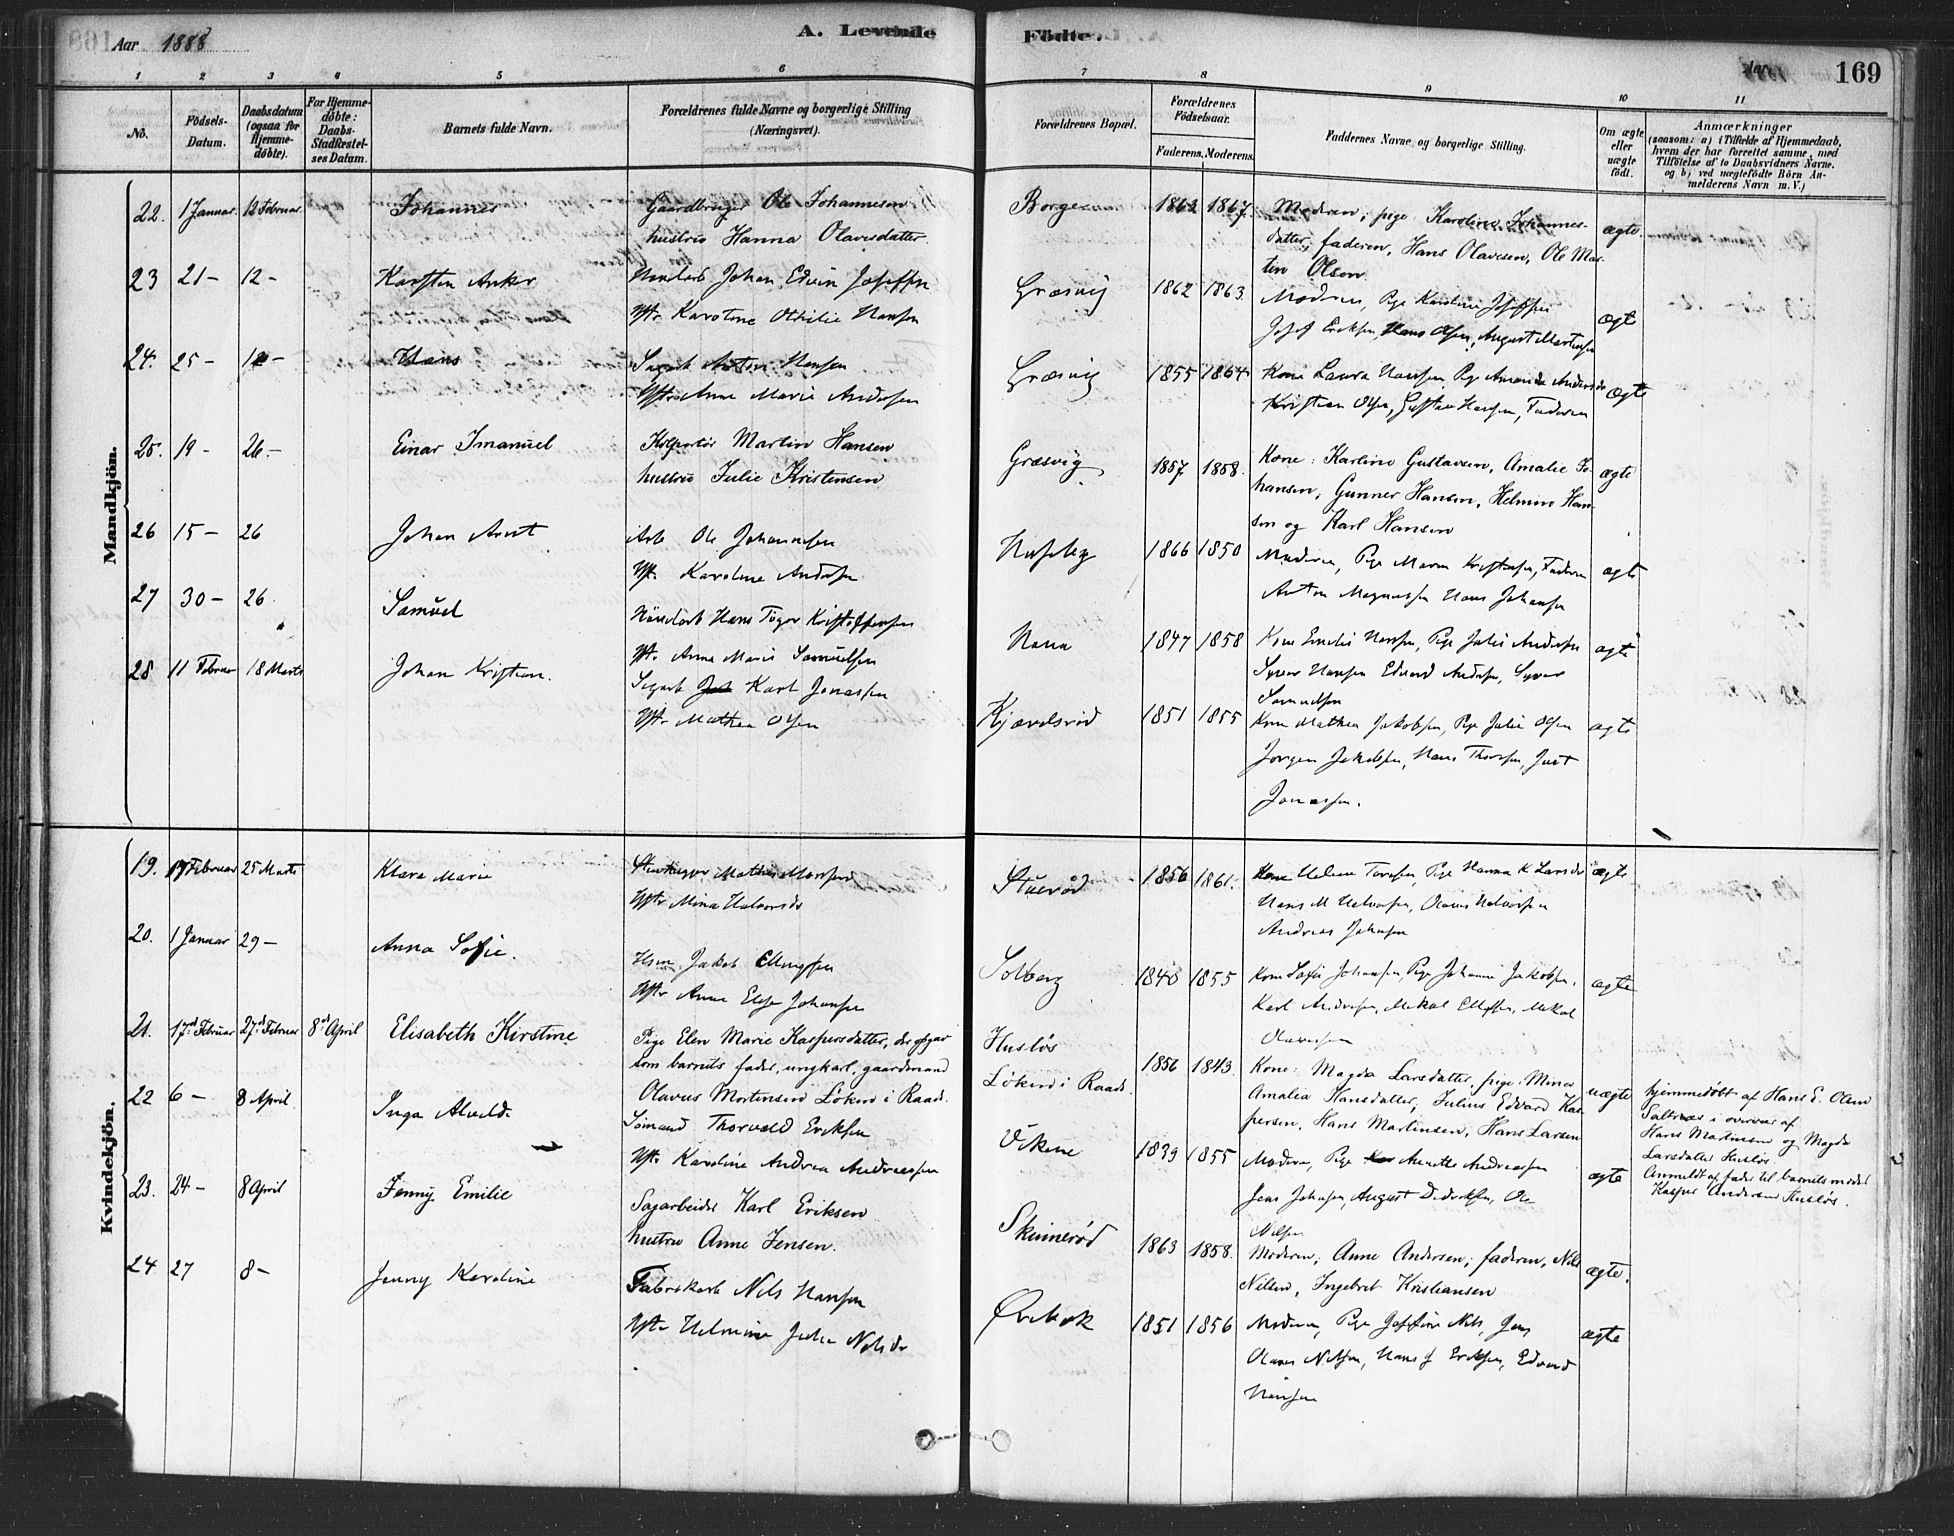 Aar 1888
A. Levende Födte.
Aar
169
1 2 3 4 5 6 7 8 9 10 11
No.
Födsels-Datum.
Daabsdatum (ogsaa for Hjemme-döbte).
For Hjemme-döbte: Daabs-Stadfæstel-ses Datum.
Barnets fulde Navn.
Forældrenes fulde Navne og borgerlige Stilling (Næringsvei).
Forældrenes Bopæl.
Forældrenes Födselsaar.
Faderens. Moderens.
Faddernes Navne og borgerlige Stilling.
Om ægte eller uægte födt.
Anmærkninger
(saasom: a) i Tilfælde af Hjemmedaab,
hvem der har forrettet samme, med
Tilföielse af to Daabsvidners Navne.
og b) ved uægtefödte Börn An-
melderens Navn m. V.)
Mandkjön.
22. 1 Januar 12 Februar Johannes Gaardbruger Ole Johannesen Borge 1863 1867. Moderen, pige Karoline Johannes- ægte
hustru Hanna Olavesdatter datter, faderen, Hans Olavesen, Ole Mar-
tin Olsen
23 21 - 12 - Karsten Anker Johan Edvin Josefsen Græsvig 1862 1863. Moderen, Pige Karoline Josefsen ægte
Hstr Karoline Othilie Hansen Josef Eriksen, Hans Olsen, August Martinsen
24. 25 - 12 - Hans Sagarb Anton Hansen Græsvig 1855 1864 Kone Laura Hansen, Pige Amanda Andersdr ægte
Hstr Anne Marie Andersen Kristian Olsen, Gustav Hansen, Faderen
25. 19 - 26. - Einar Imanuel Kolportör Martin Hansen Græsvig 1857 1858. Kone: Karline Gustavsen, Amalie Jo- ægte
hustru Julie Kristensen hansen, Gunner Hansen, Helmine Han-
sen og Karl Hansen
26 15 - 26 Johan Arnt Arb Ole Johannesen 1866 1850 Moderen, Pige Maren Kristensen, Faderen ægte
Hst. Karoline Andersen Anton Magnussen Hans Johansen
27 30 - 26 Samuel Hans Töger Kristoffersen 1847 1858 Kone Emilie Hansen, Pige Julie Andersen ægte
Hst. Anna Marie Samuelsen Syver Hansen Edvard Andersen, Syver
Samuelsen
28 11 Februar 18 Marts Johan Kristian. Sagarb Karl Jonassen Kjærelsröd 1851 1855 Kone Mathea Jakobsen, Pige Julie Olsen ægte
Hstr Mathea Olsen Jörgen Jakobsen, Hans Thorsen, Just
Jonassen.
Kvindekjön.
19. 17 Februar 25 Marts Klara Marie Stenhugger 1856 1861. Kone Helene Pige Hanna K Larsdr ægte
Hstr Mina Halvorsdr Hans M Halvorsen, Olaves Halvorsen
Andreas Johnsen
20. 1 Januar 29 - Anna Sofie. Hsm. Jakob Ellingsen Solberg 1840 1855 Kone Sofie Johansen, Pige Johanne Jakobsen, ægte
Hstr Anne Elise Johansen Karl Andersen, Mikal Mikal
Olavesen
21. 17d Februar 27d Februar 8d April Elisabeth Kirstine Pige Elen Marie Kaspersdatter, der opgav Huslös
som barnets fader, ungkarl, gaardmand Löken i Raade 1856 1843. Kone: Magda Larsdatter, pige: Mina uægte hjemmedöbt af Hans E. Olsen
Olavus Mortensen Löken i Raade. Amalia Hansdatter, Julius Edvard Kas- Saltnæs i overvær af
persen, Hans Martinsen, Hans Larsen Hans Martinsen og Magda
Larsdatter Huslös.
Anmeldt af fader til barnets moder
Kasper Andersen Huslös.
22 6 - 8 April Inga Alvilde Sömand Thorvald Eriksen Vikene 1839 1855 Moderen, Pige Anette Andreassen ægte
Hstr Karoline Andrea Andreassen Jens Johnsen, August Didriksen, Ole
Nilsen
23. 24 - 8 April Jenny Emilie Sagarbeider Karl Eriksen Skinneröd 1863 1858. Moderen; Anne Andersen; faderen, Nils ægte.
hustru Anne Jensen. Nilsen, Ingebret Kristiansen
24 27 8 - Jenny Karoline Fabrikarb Nils Hansen 1851 1856 Moderen, Pige Josefine Nils, Jens ægte
Hstr Helmine Julie Nilsdr Olaves Nilsen, Hans J Eriksen, Edvard
Hansen